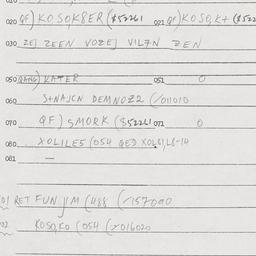 020 QF) KOSOK8ER ($52261 021 QF) KOSO,K+ ($522
030 ZEJ ZEEN VOZEJ VILZN ZEN
050 KATER 051 0
060 S+NAJCN DEMNOZ2 (/011010
070 QF) SMORK ($52261 071 0
080 XOLILES (054 QED XOL81,L8-14
081 —
01 RET FUN JIM (488 (-157090
02 KOSO,KO (054 (2016020